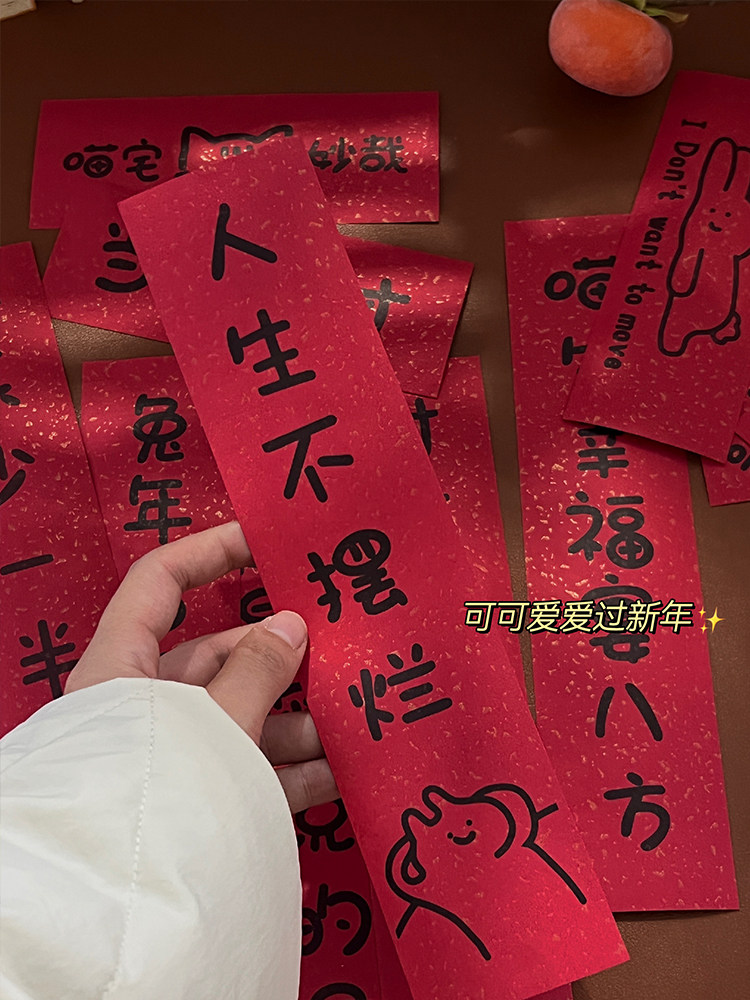 喵宅 妙哉
人生不摆烂
I Don't want to move
兔年
少一半
幸福宴八方
可可爱爱过新年
的